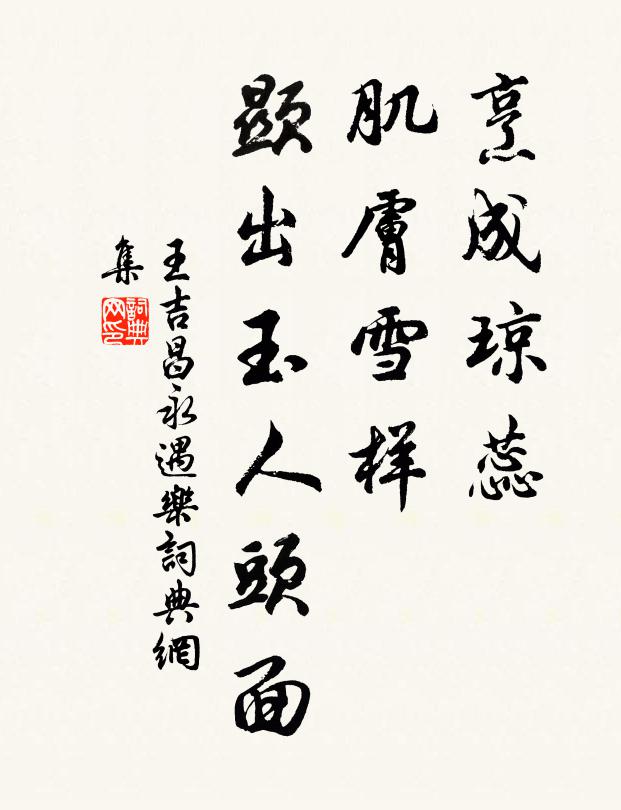 烹成琼蕊
肌膚雪样
顯出玉人頭面
王吉昌永遇樂詞典網
集
詞典
网印